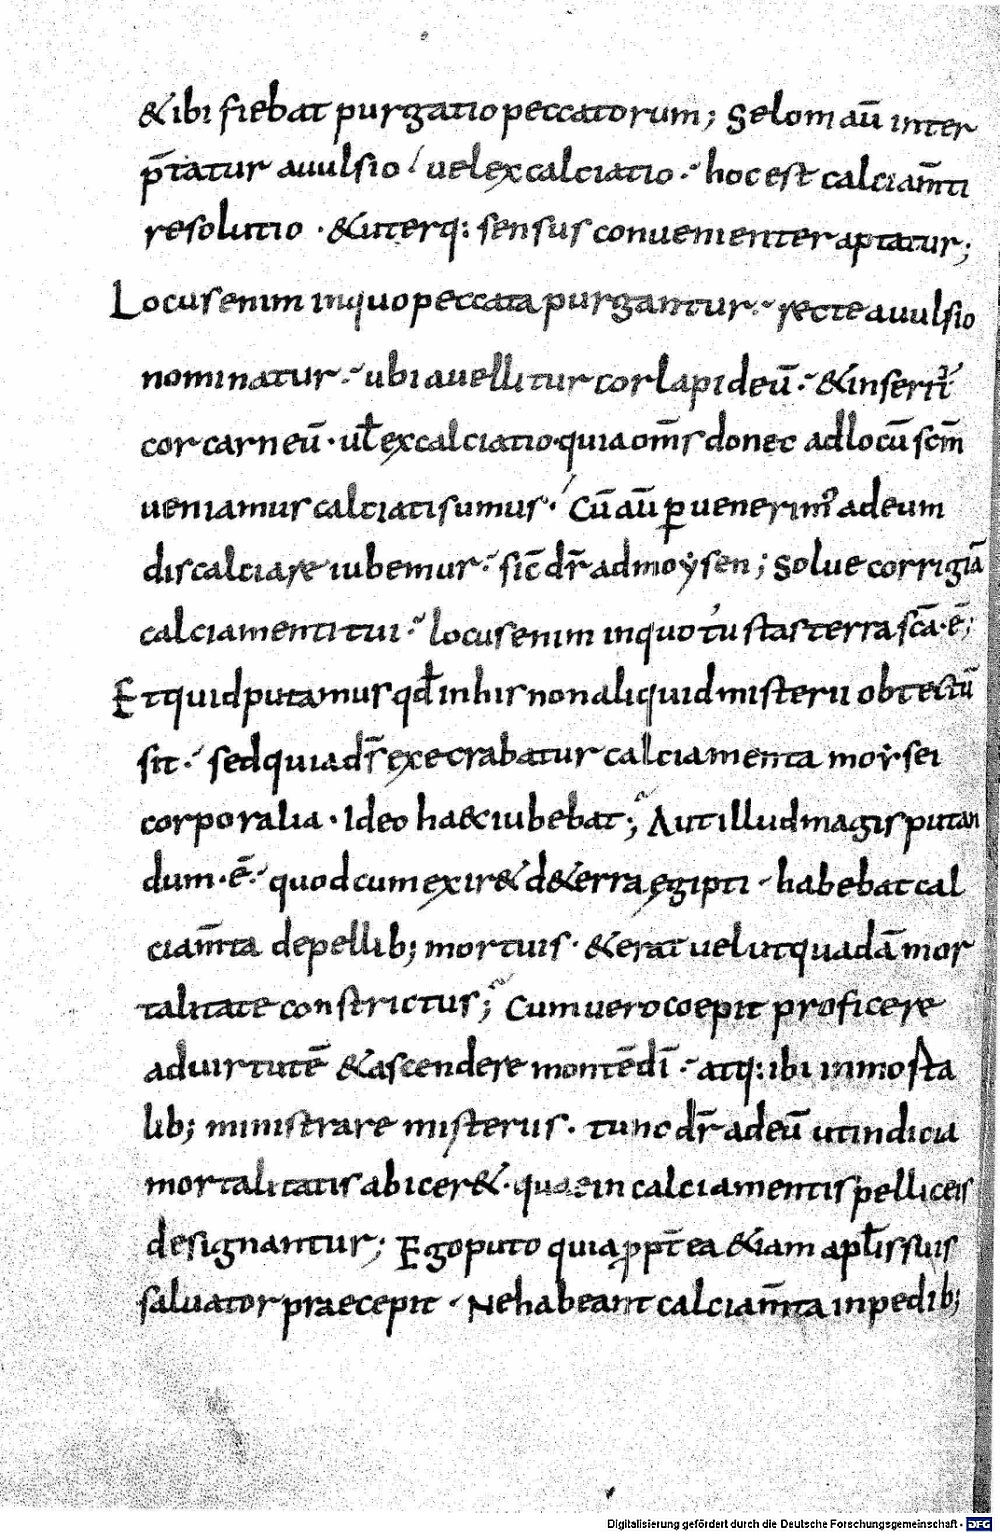 & ibi fiebat purgatio peccatorum; Selom aū inter
p̄tatur auulsio / uel excalciatio · hoc est calciam̄ti
resolutio · & uterq: sensus conuenienter aptatur;
Locus enim in quo peccata purgantur · recte auulsio
nominatur · ubi auellitur cor lapideū · & inserit᷑
cor carneū · ul̄ excalciatio · quia om̄s donec ad locū scm̄
ueniamus calciati sumus · Cū aū ꝑuenerimꝰ ad eum
discalciare iubemur · sic̄ dr̄ ad moẏsen; Solue corrigiā
calciamenti tui · locus enim in quo tu stas terra scā · ē;
Et quid putamus qđ in his non aliquid misterii obtectū
sit · sed quia dr̄ execrabatur calciamenta moẏsei
corporalia · Ideo haec iubebat; Aut illud magis putan
dum · ē · quod cum exir& d& erra egipti · habebat cal
ciam̄ta de pellib; mortuis · & erat uelut quadā mor
talitate constrictus; Cum uero coepit proficere
ad uirtutē & ascendere montē dī · atq: ibi inmorta
lib; ministrare misteriis · tunc dr̄ ad eū ut indicia
mortalitatis abicer& · quae in calciamentis pelliceis
designantur; Ego puto quia ꝓpt̄ea &iam apl̄is suis
saluator praecepit · Ne habeant calciam̄ta in pedib;
Digitalisierung gefördert durch die Deutsche Forschungsgemeinschaft - DFG